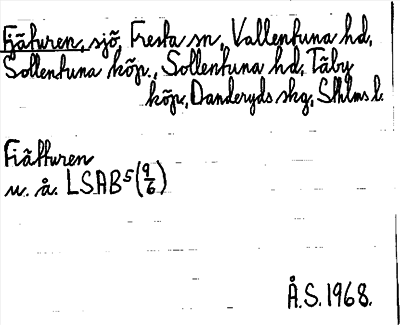 Fjäturen, sjö, Fresta sn, Vallentuna hd,
Sollentuna köp., Sollentuna hd, Täby
köp., Danderyds skg, Sthlms l.
Fiätturen
u. å. LSAB⁵(9/6)
Å.S. 1968.